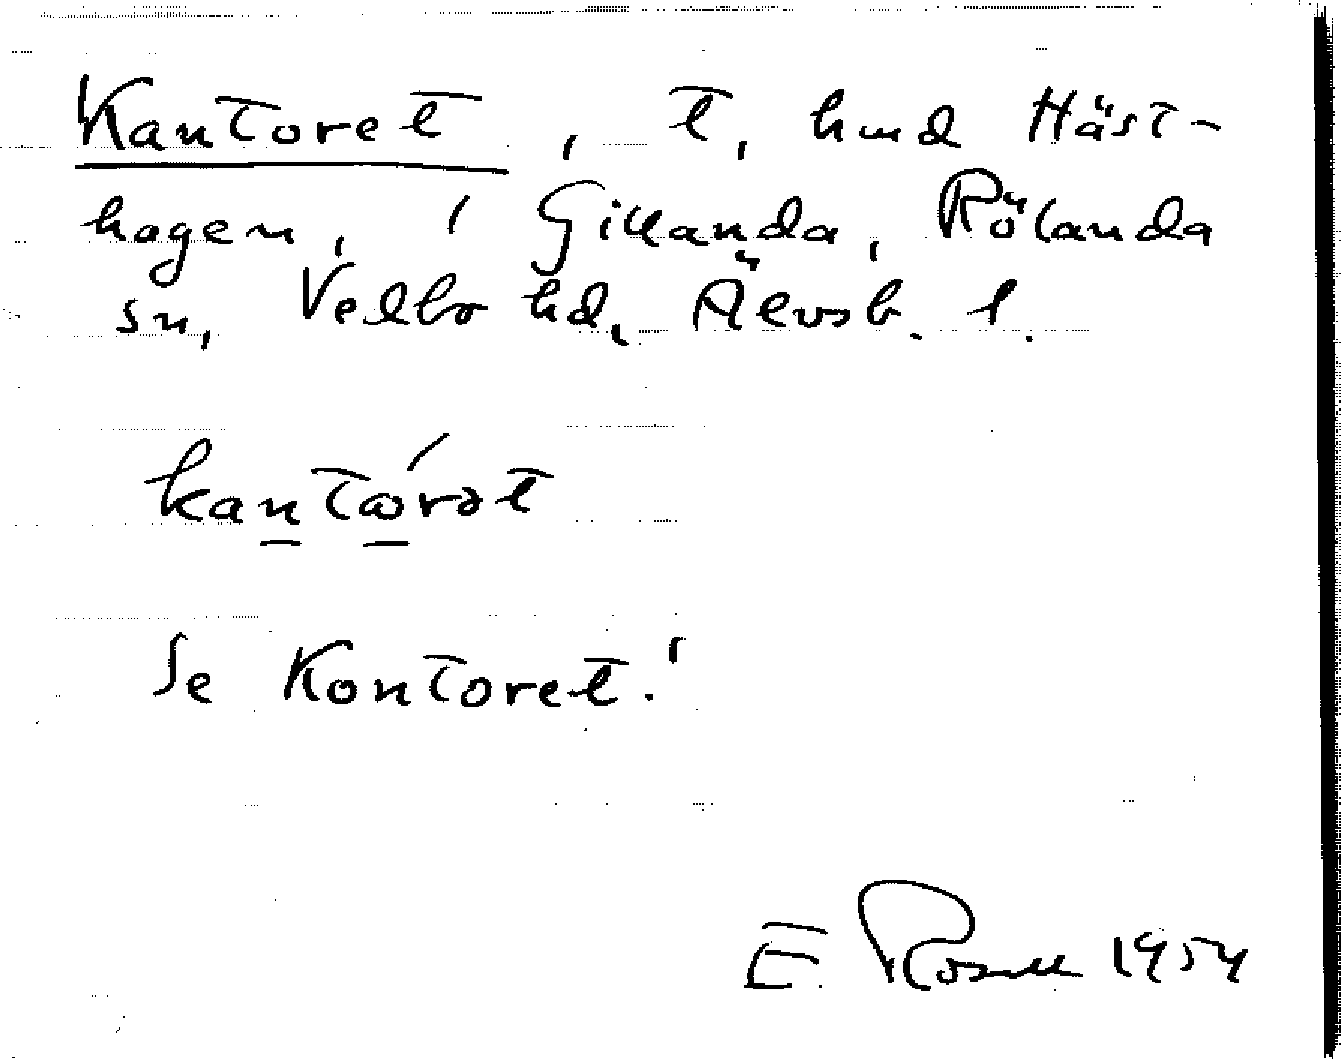 Kantoret, t, hmd Häst-
hagen, i Gillanda, Rölanda
sn, Vedbo hd, Älvsb. l.
kantώrət
Se Kontoret!
E. Rosell 1954